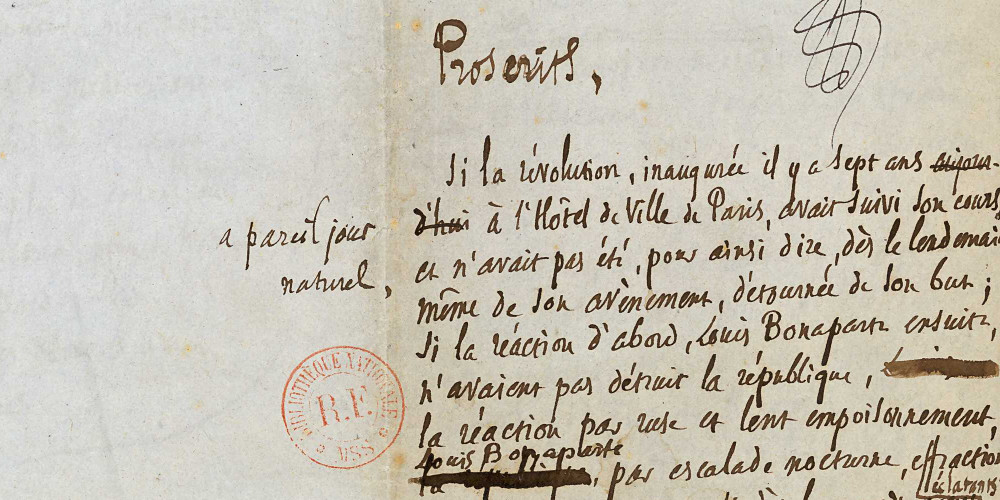 Proscrits,
Si la révolution, inaugurée il y a sept ans aujour-
d'hui à l'Hôtel de Ville de Paris, avait suivi son cours
a pareil jour
naturel,
et n'avait pas été, pour ainsi dire, dès le lendemain
même de son avènement, détournée de son but ;
si la réaction d'abord, Louis Bonaparte ensuite,
n'avaient pas détruit la république,
la réaction par ruse et lent empoisonnement,
Louis Bonaparte
la
par escalade nocturne, effraction
éclatants
BIBLIOTHÈQUE NATIONALE
R.F.
MSS